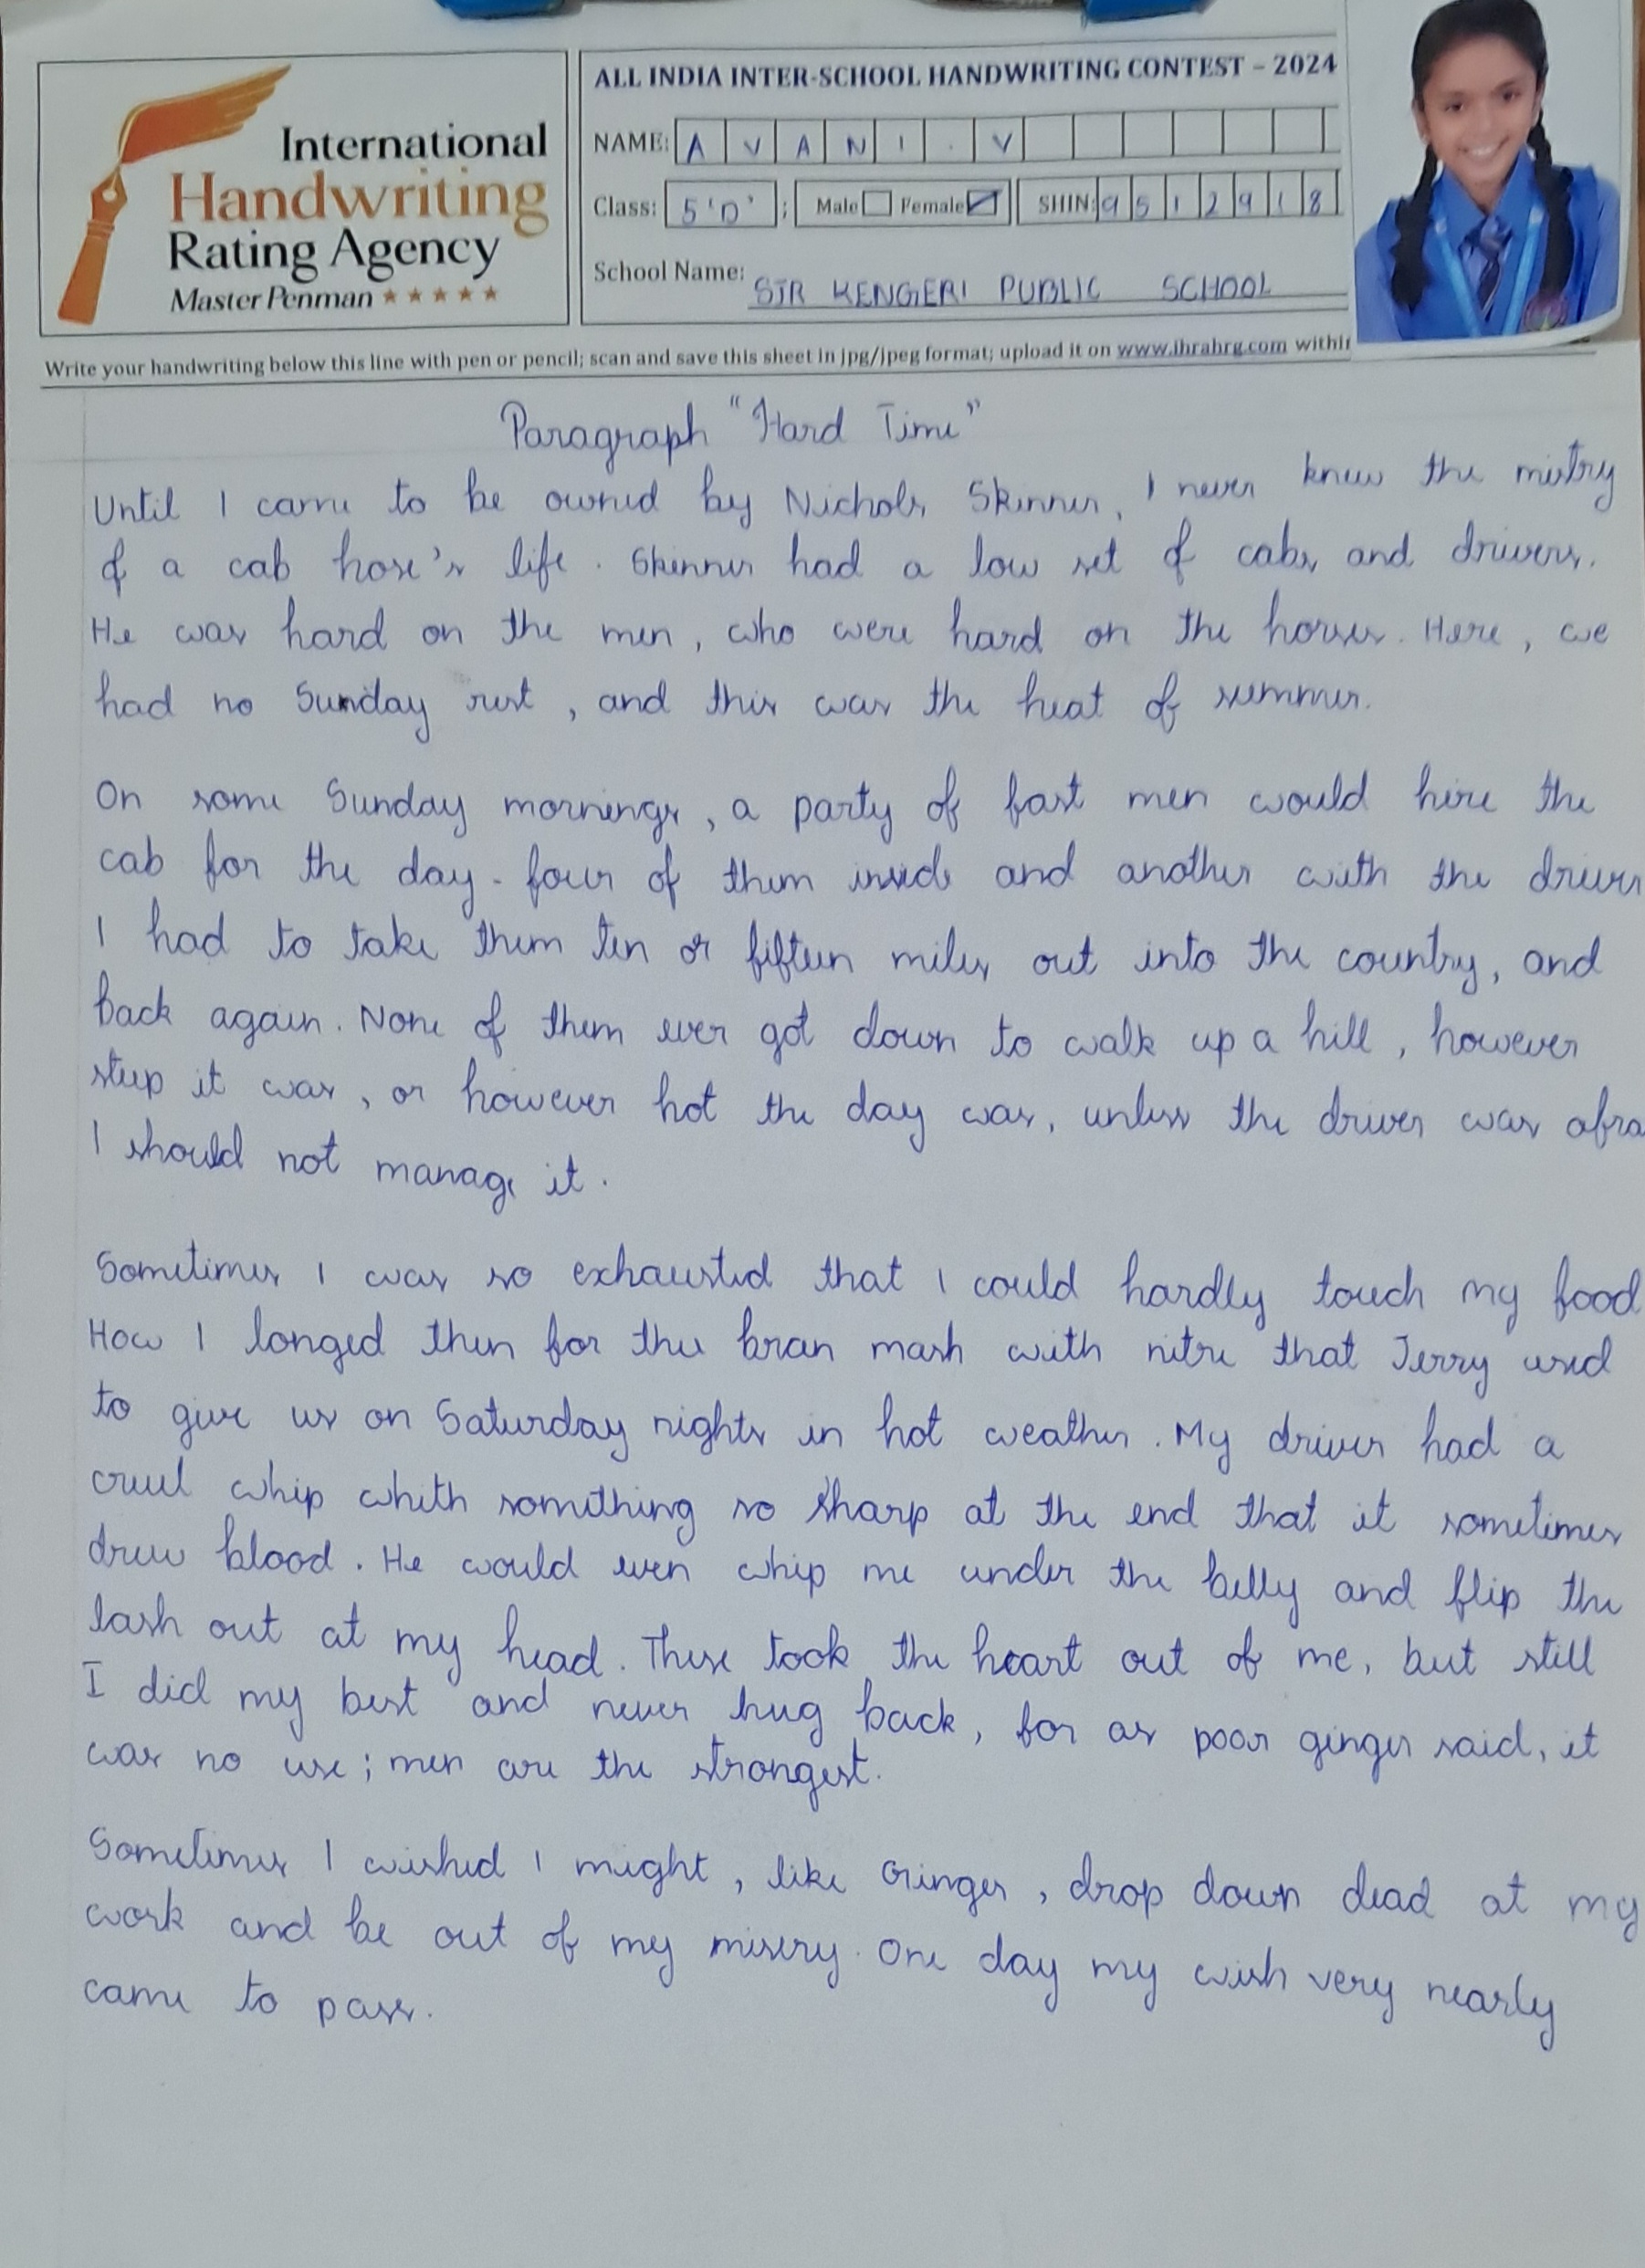 International
Handwriting
Rating Agency
Master Penman
ALL INDIA INTER-SCHOOL HANDWRITING CONTEST – 2024
NAME: AVANI.V
Class: 5 'D' ; Male Female SHIN: 9512918
School Name: SJR KENGERI PUBLIC SCHOOL
Write your handwriting below this line with pen or pencil; scan and save this sheet in jpg/jpeg format; upload it on www.ihrahrg.com within
Paragraph "Hard Time"
Until I came to be owned by Nichols Skinner, I never knew the mistry
of a cab horse's life. Skinner had a low set of cabs and drivers.
He was hard on the men, who were hard on the horses. Here, we
had no Sunday rest, and this was the heat of summer.
On some Sunday mornings, a party of fast men would hire the
cab for the day - four of them inside and another with the driver
I had to take them ten or fifteen miles out into the country, and
back again. None of them ever got down to walk up a hill, however
steep it was, or however hot the day was, unless the driver was afra
I should not manage it.
Sometimes I was so exhausted that I could hardly touch my food
How I longed then for the bran mash with nitre that Jerry used
to give us on Saturday nights in hot weather. My driver had a
cruel whip whith something so sharp at the end that it sometimes
drew blood. He would even whip me under the belly and flip the
lash out at my head. These took the heart out of me, but still
I did my best and never hug back, for as poor ginger said, it
was no use; men are the strongest.
Sometimes I wished I might, like Ginger, drop down dead at my
work and be out of my misery. One day my wish very nearly
came to pass.